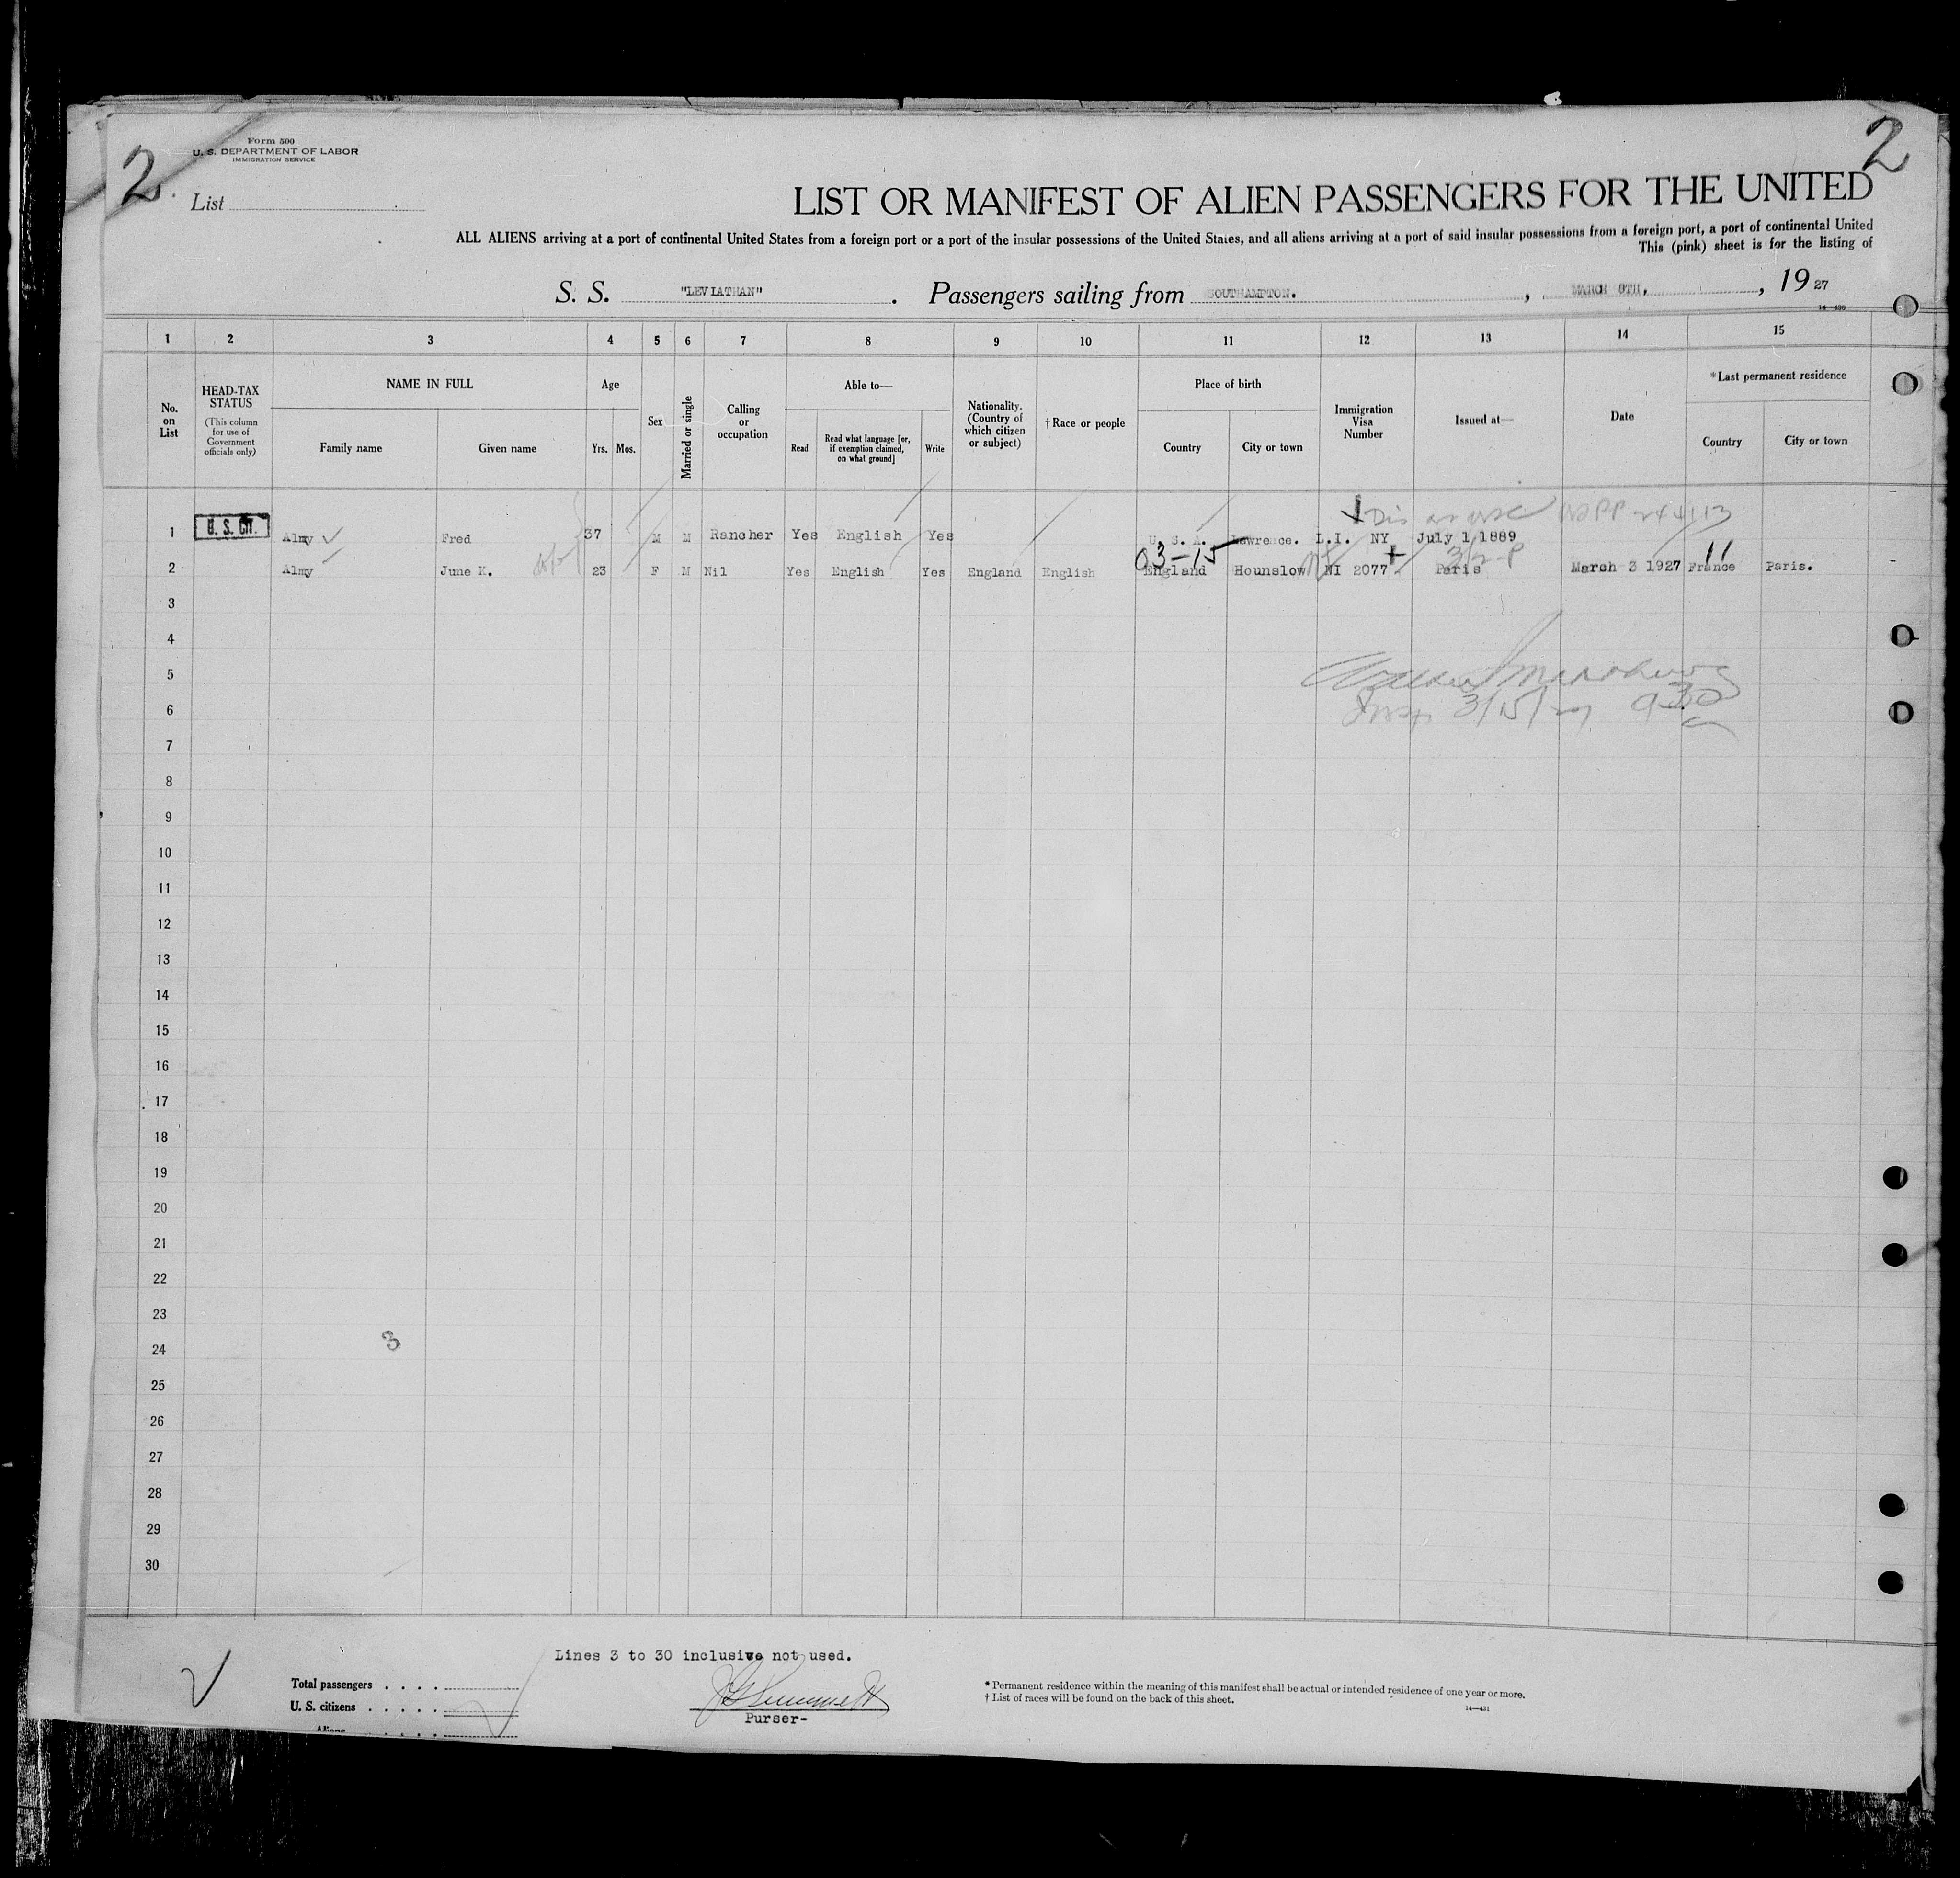 2
2
Form 500
U. S. DEPARTMENT OF LABOR
IMMIGRATION SERVICE
List
LIST OR MANIFEST OF ALIEN PASSENGERS FOR THE UNITED
ALL ALIENS arriving at a port of continental United States from a foreign port or a port of the insular possessions of the United States, and all aliens arriving at a port of said insular possessions from a foreign port, a port of continental United
This (pink) sheet is for the listing of
S. S. "LEVIATHAN". Passengers sailing from SOUTHAMPTON., MARCH 8TH., 1927
1 2 3 4 5 6 7 8 9 10 11 12 13 14 15
No. on List
HEAD-TAX STATUS
(This column for use of Government officials only)
NAME IN FULL
Family name
Given name
Age
Yrs. Mos.
Sex
Married or single
Calling or occupation
Able to—
Read
Read what language [or, if exemption claimed, on what ground]
Write
Nationality. (Country of which citizen or subject)
†Race or people
Place of birth
Country
City or town
Immigration Visa Number
Issued at—
Date
*Last permanent residence
Country
City or town
1 U. S. CIT. Almy Fred 37 M M Rancher Yes English Yes U. S. A. Lawrence. L.I. NY July 1 1889
03-15
2 Almy June K. 23 F M Nil Yes English Yes England English England Hounslow NI 2077 Paris March 3 1927 France Paris.
3
4
5
6
3/15/27 930
7
8
9
10
11
12
13
14
15
16
17
18
19
20
21
22
23
24
3
25
26
27
28
29
30
Lines 3 to 30 inclusive not used.
Total passengers
U. S. citizens
Aliens
Purser-
* Permanent residence within the meaning of this manifest shall be actual or intended residence of one year or more.
† List of races will be found on the back of this sheet.
14—431